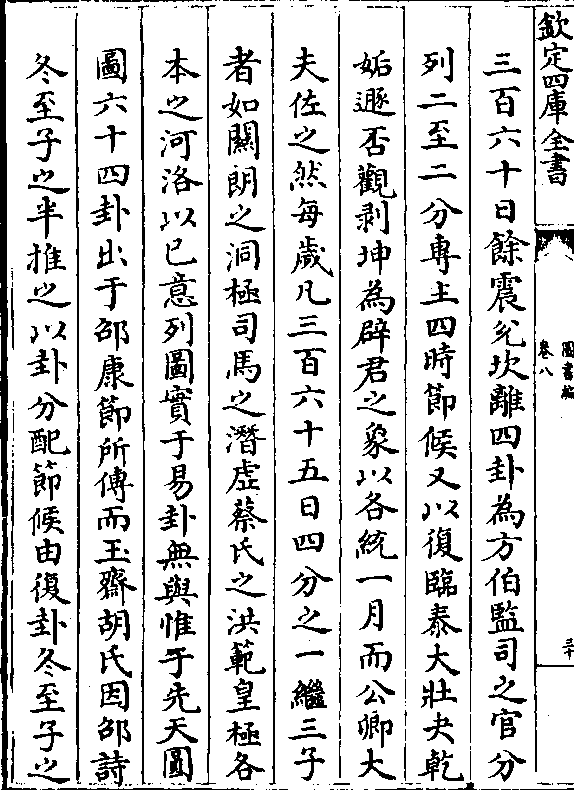 欽定四庫全書
圖書編
卷八
三十
三百六十日餘震兊坎離四卦為方伯監司之官分
列二至二分專主四時節候又以復臨泰大壯夬乾
姤遯否觀剥坤為辟君之象以各統一月而公卿大
夫佐之然每歲凡三百六十五日四分之一繼三子
者如關朗之洞極司馬之潛虛蔡氏之洪範皇極各
本之河洛以已意列圖實于易卦無與惟于先天圓
圖六十四卦出于邵康節所傳而玉齋胡氏因邵詩
冬至子之半推之以卦分配節候由復卦冬至子之